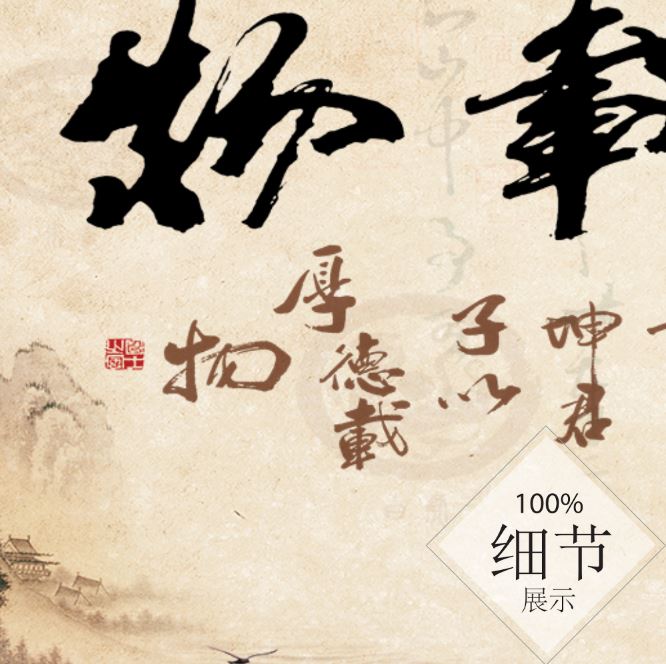 載物
坤君
子以
厚德載
物
100%
细节
展示